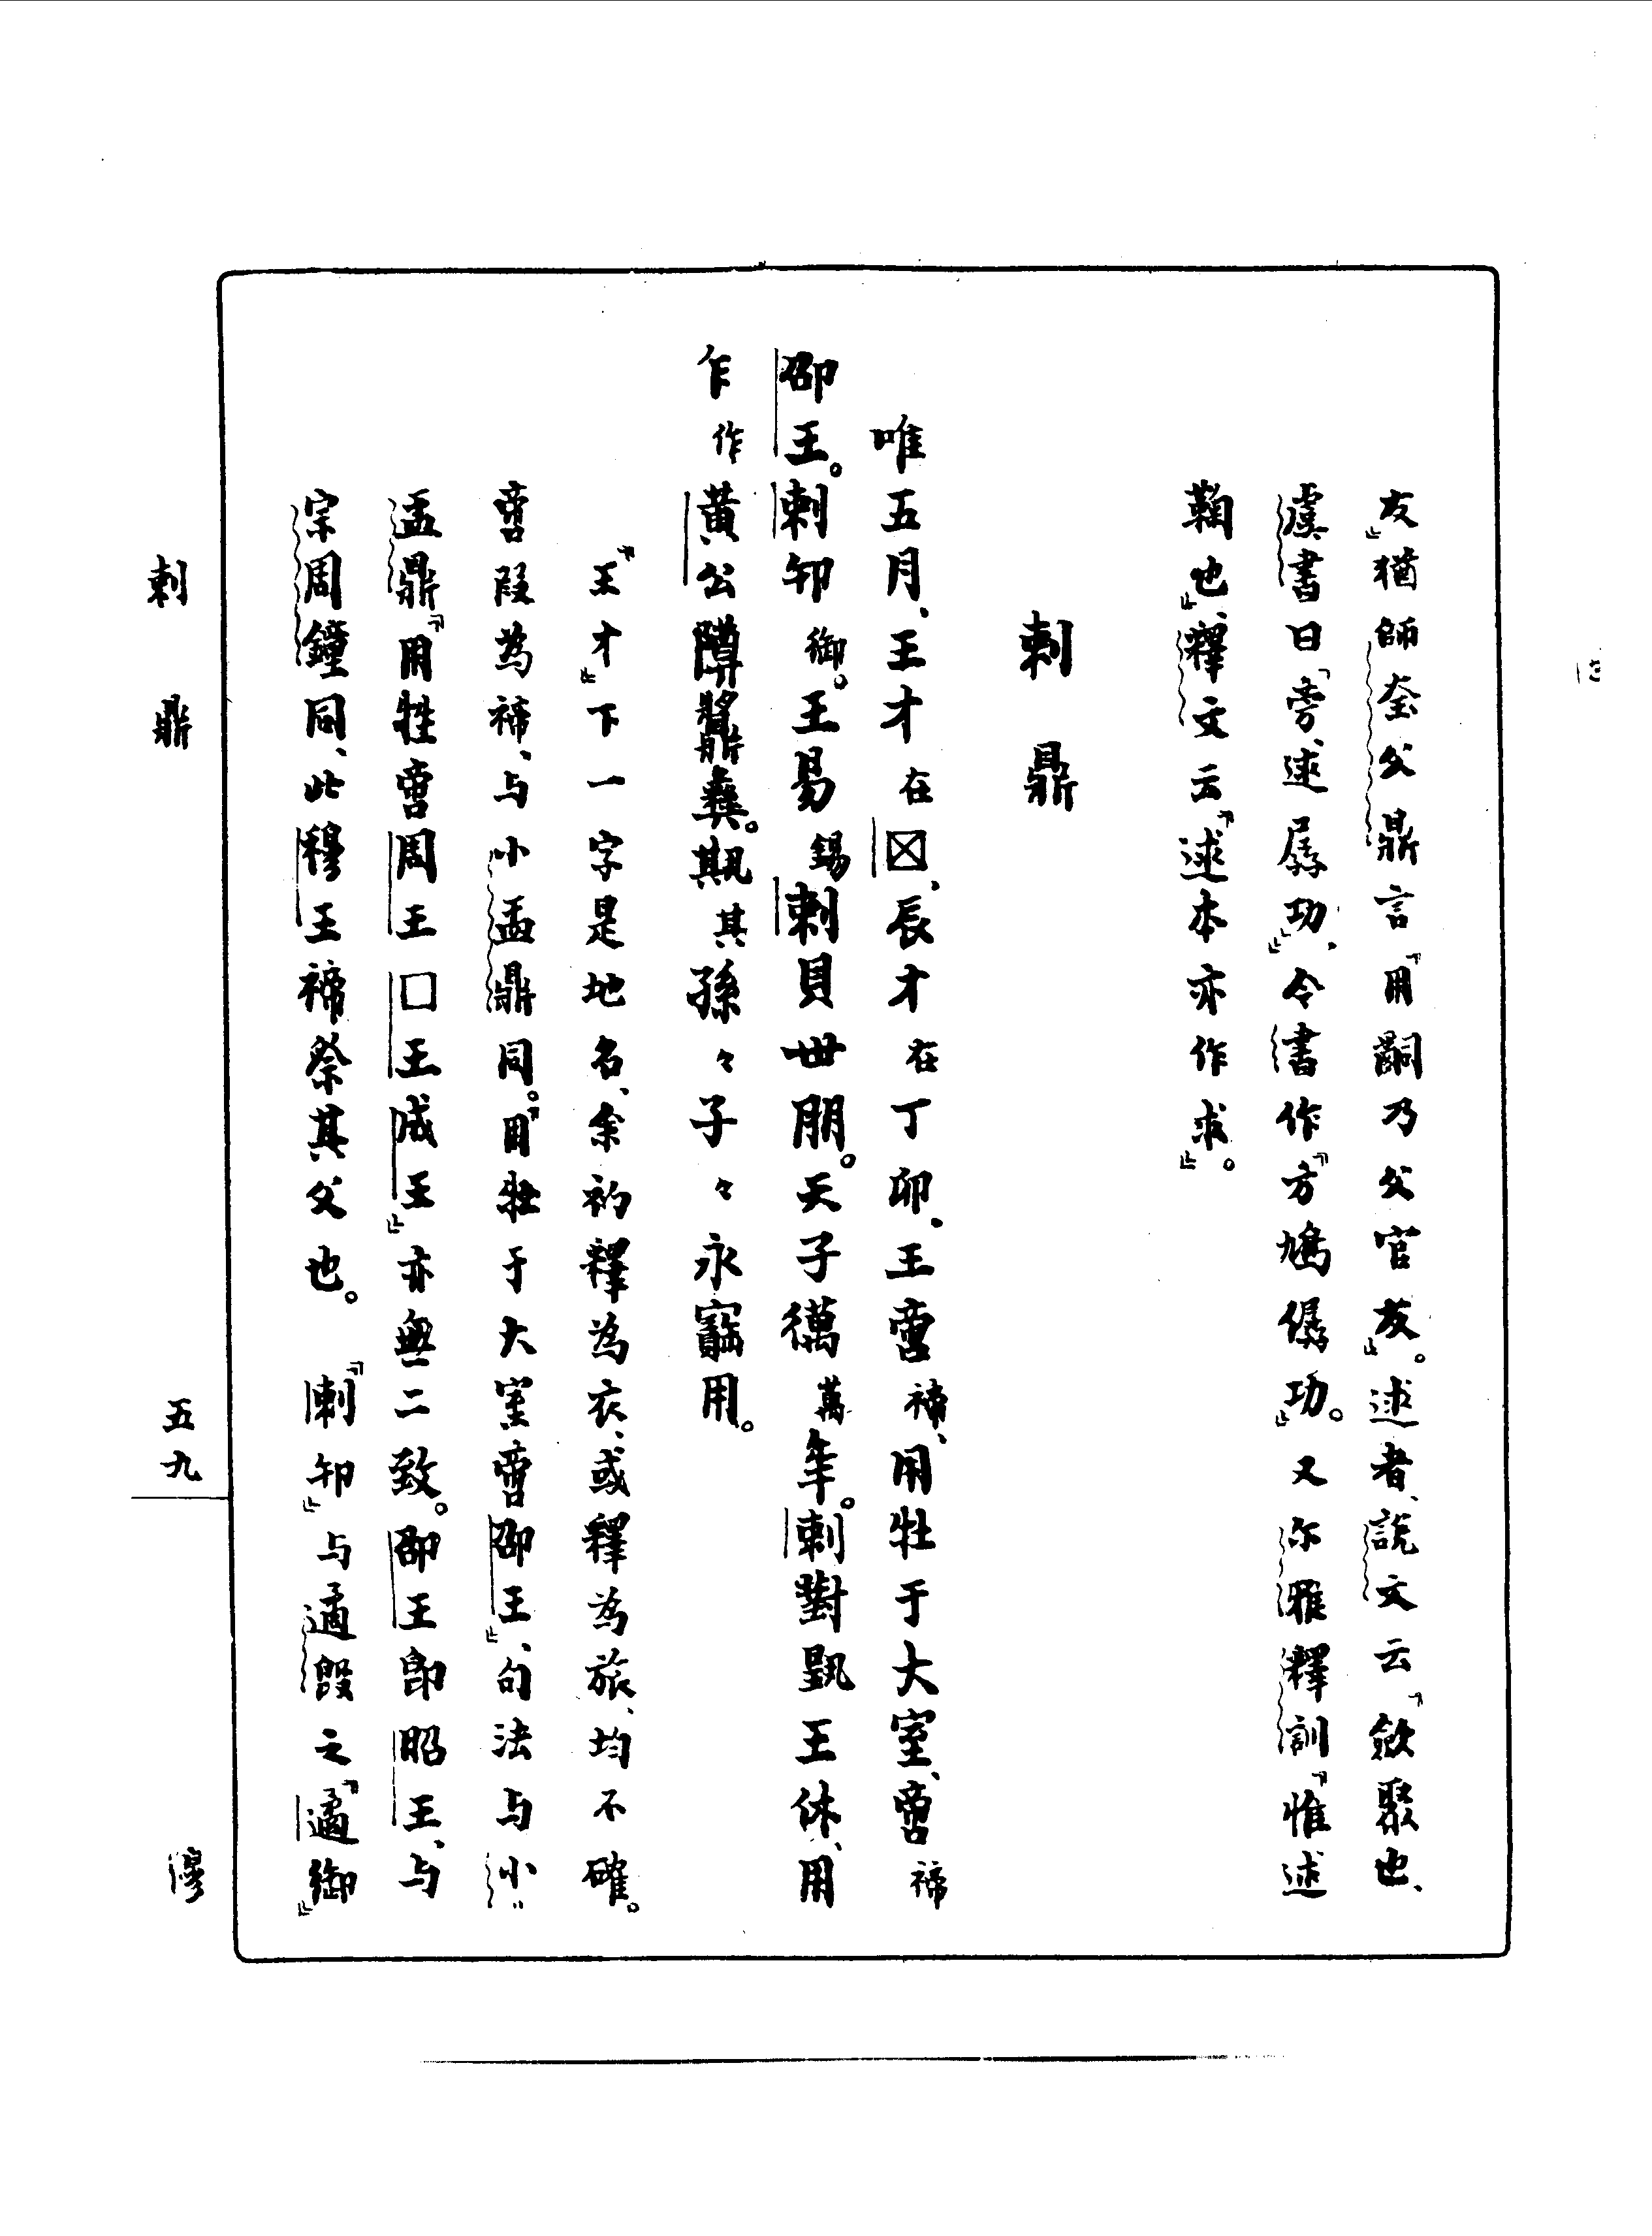 友』猶師㝨父鼎言『用嗣乃父官友』。逑者、說文云『斂聚也、
虞書曰「㫄逑孱功」』、今書作『方鳩僝功』。又尔雅釋訓『惟逑
鞫也』、釋文云『逑本亦作求』。
剌鼎
唯五月、王才在☒、辰才在丁卯、王啻禘、用牡于大室、啻禘
邵王。剌卸御。王易錫剌貝卅朋。天子徫萬年。剌對揚王休、用
乍作黃公䵼彝。其孫々子々永寶用。
『王才』下一字是地名、余初釋為衣、或釋為旅、均不確。
啻叚為禘、与小盂鼎同。『用牡于大室啻邵王』、句法与小
盂鼎『用牲啻周王□王成王』亦無二致。邵王即昭王、与
宗周鐘同、此穆王禘祭其父也。『剌卸』与遹𣪘之『遹御』
剌鼎
五九
穆